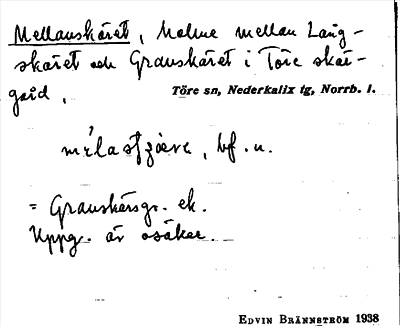 Mellanskäret, Holme mellan Lång-
skäret och Granskäret i Töre skär-
gård.
Töre sn, Nederkalix tg, Norrb. l.
bf. n.
= Granskärsgr. ek.
Uppg. är osäker.
EDVIN BRÄNNSTRÖM 1938